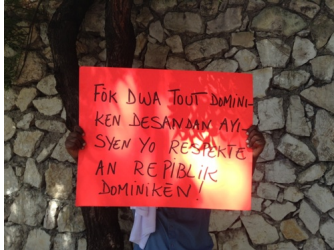 FÒK DWA TOUT DOMINI-
KEN DESANDAN AYI-
SYEN YO RESPEKTE
AN REPIBLIK
DOMINIKÈN!